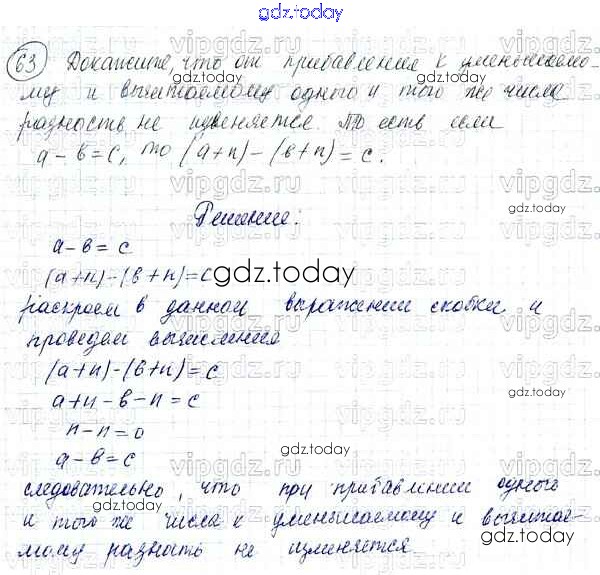 gdz.today
63 Докажите, что от прибавления к уменьшаемо-
му и вычитаемому одного и того же числа
разность не изменяется. То есть если
a - в = c, то (a+n) - (в+n) = c.
Решение:
a - в = c
(a+n) - (в+n) = c
раскроем в данном выражении скобки и
проведем вычисления
(a+n) - (в+n) = c
a+n - в - n = c
n - n = 0
a - в = c
следовательно, что при прибавлении одного
и того же числа к уменьшаемому и вычитае-
мому разность не изменяется.
gdz.today
vipgdz.ru